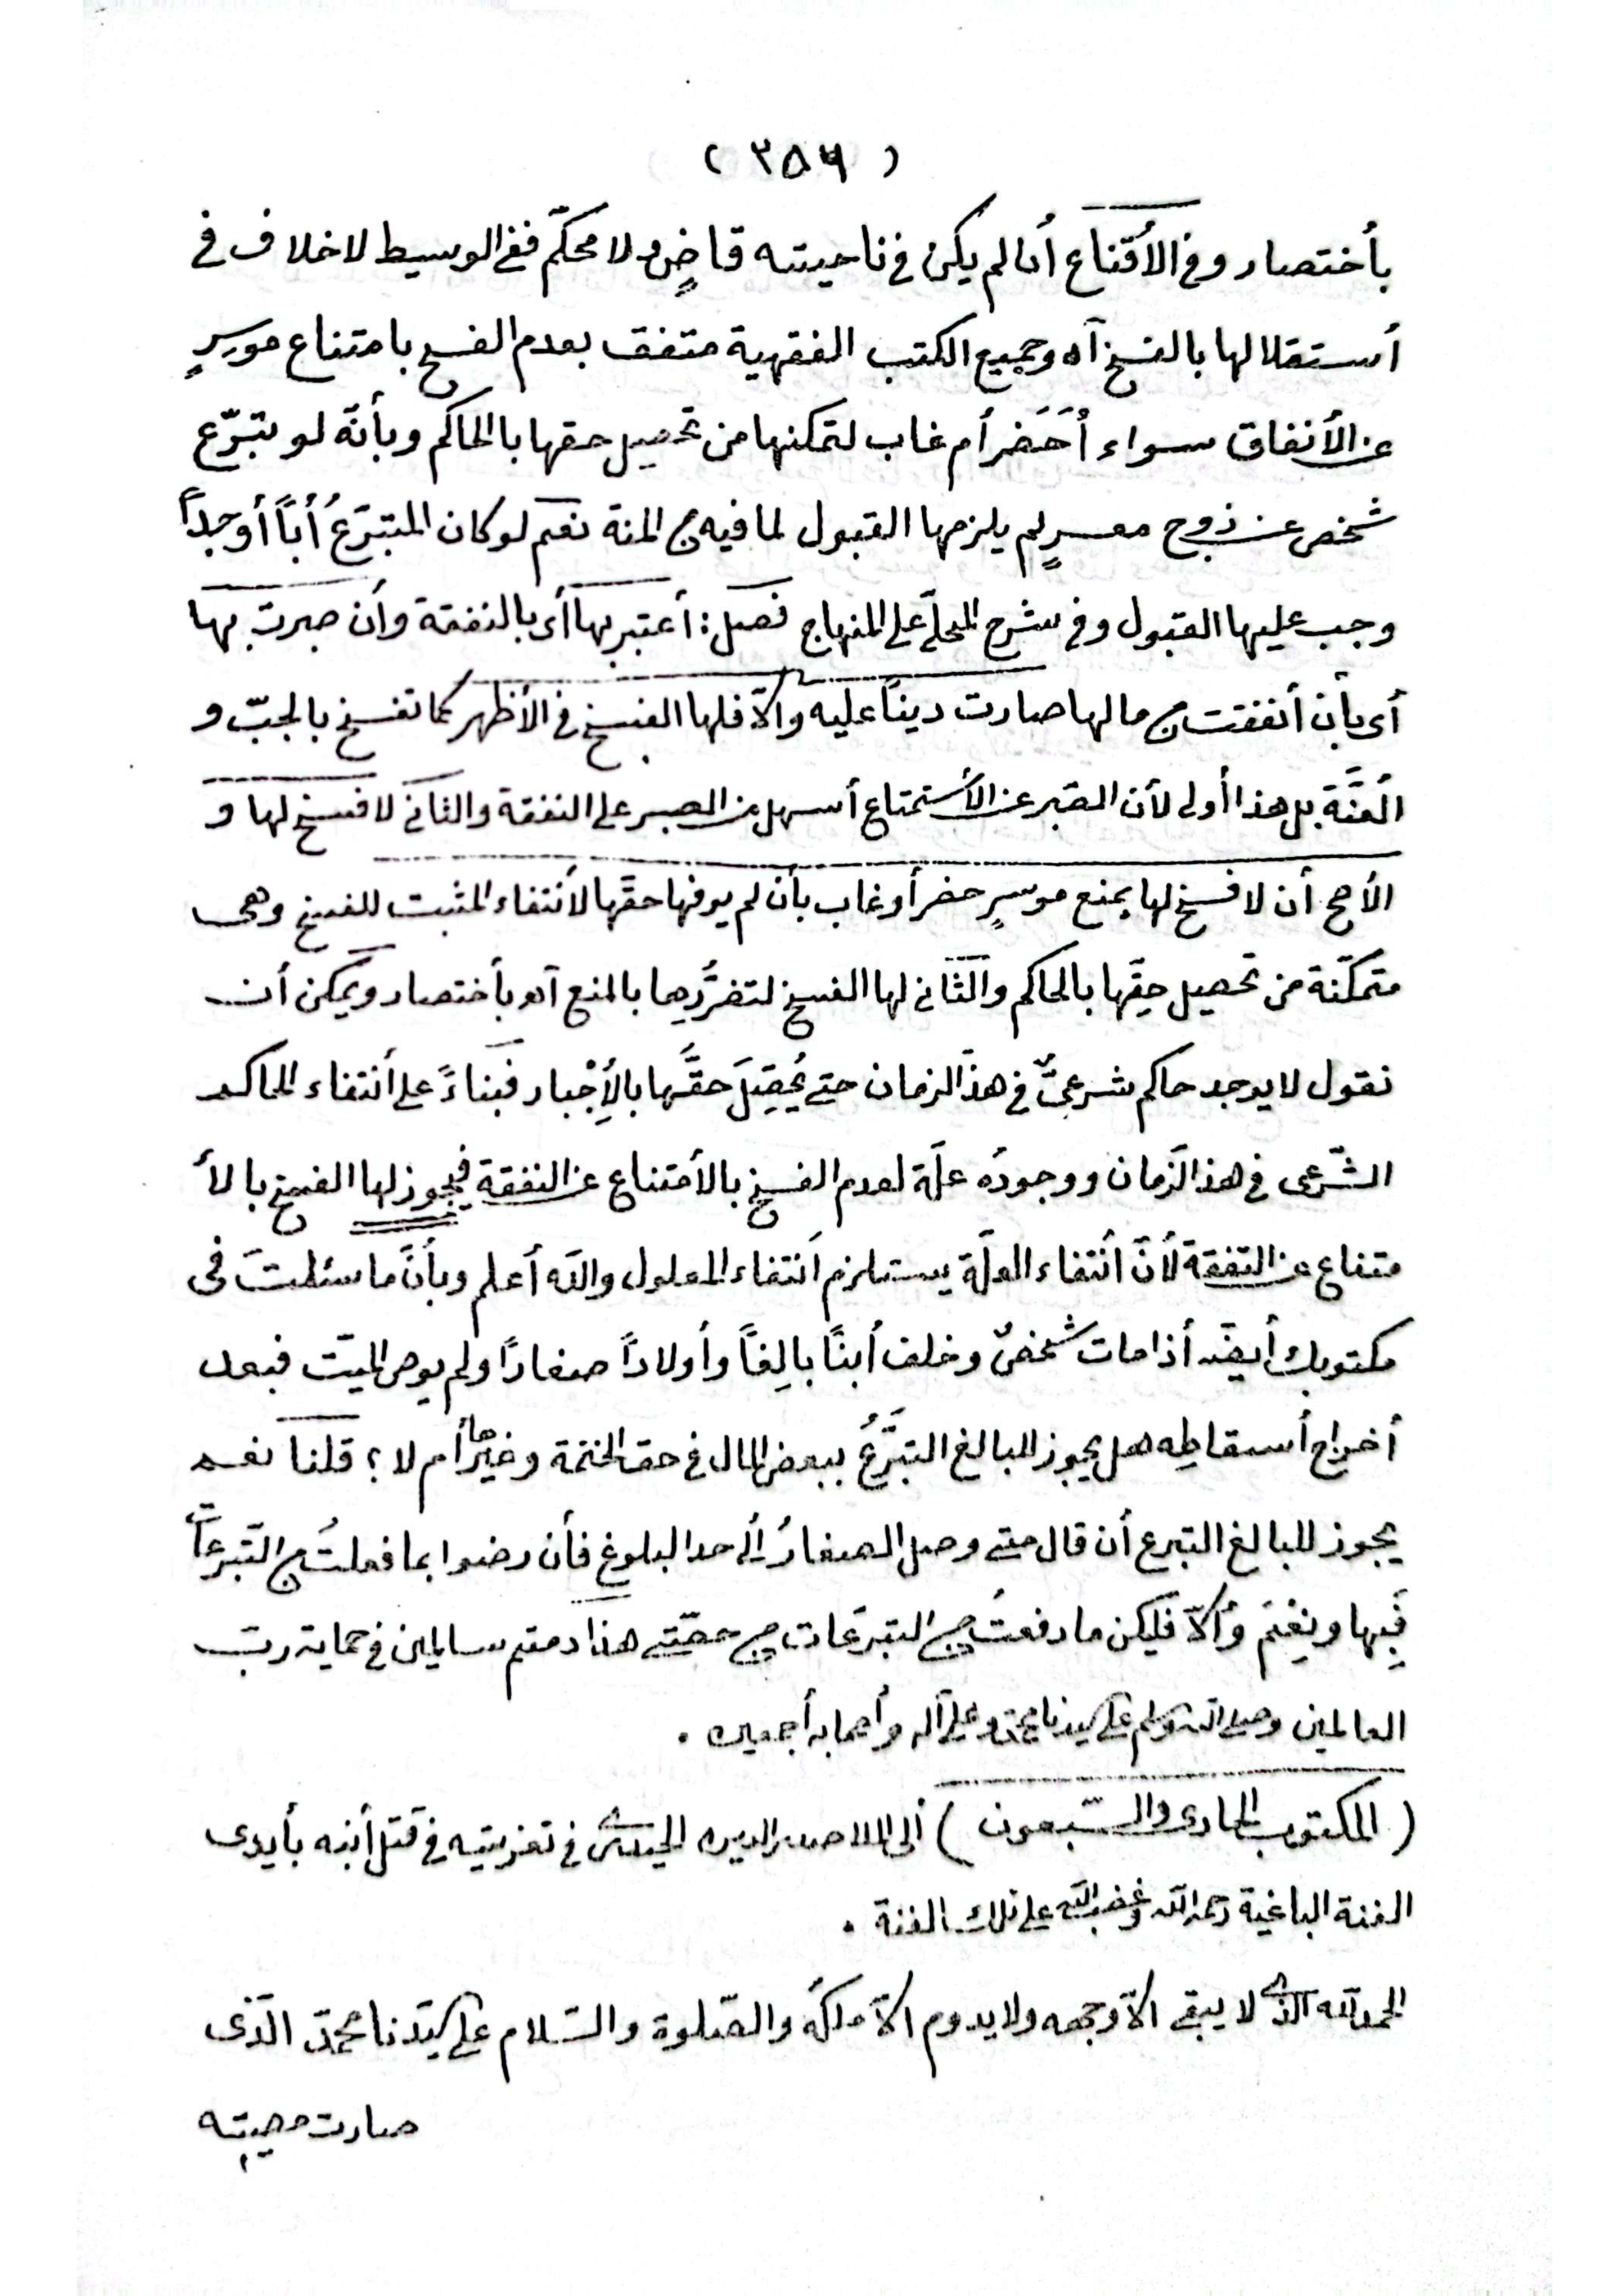 ( ٣٥٦ )
بأختصار وفى الأقناع أنا لم يكن فى ناحيته قاضٍ ولا محكّم ففى الوسيط لا خلاف فى
أستقلالها بالفسخ آه وجميع الكتب الفقهية متفق بعدم الفسخ بامتناع موسرٍ
عن الأنفاق سواء أحَضَر أم غاب لتمكنها من تحصيل حقها بالحاكم وبأنّه لو تبرّع
شخص عن زوج معسرٍ لم يلزمها القبول لما فيه من المنة نعم لو كان المتبرّعُ أباً أو جداً
وجب عليها القبول وفى شرح المحلّى على المنهاج فصل : أعتبر بها أى بالنفقة وأن صبرت بها
أى بأن أنفقت من مالها صارت ديناً عليه وألاّ فلها الفسخ فى الأظهر كما تفسخ بالجبّ و
العُنَّة بل هذا أولى لأن الصّبر عن الأستمتاع أسهل من الصبر على النفقة والثانى لا فسخ لها و
الأصح أن لا فسخ لها بمنع موسرٍ حضر أو غاب بأن لم يوفها حقّها لأنتفاء المثبت للفسخ وهى
متمكّنة من تحصيل حقّها بالحاكم والثّانى لها الفسخ لتضرُّرِها بالمنع آه بأختصار ويمكن أن
نقول لا يوجد حاكم شرعىٌّ فى هذا الزمان حتى يُحصِّلَ حقَّها بالأِجْبار فبناءً على أنتفاء الحاكم
الشّرعى فى هذا الزّمان ووجودُه علّة لعدم الفسخ بالأمتناع عن النفقة فيجوز لها الفسخ بالأ
متناع عن النّفقة لأنّ أنتفاء العلّة يستلزم أنتفاء المعلول والله أعلم وبأنّ ما سئلتَ فى
مكتوبك أيضًا أذا مات شخصٌ وخلف أبنًا بالِغاً وأولاداً صغارًا ولم يوص الميّت فبعد
أخراج أسقاطِه هل يجوز للبالغ التبرّعُ ببعض المال فى حق الختمة وغيرها أم لا ؟ قلنا نعم
يجوز للبالغ التبرع أن قال متى وصل الصغارُ ألى حد البلوغ فأن رضوا بما فعلتُ من التّبرعات
فَبِها ونِعْمَ وألاّ فليكن ما دفعتُ من التبرّعات من حصّتى هذا دمتم سالمين فى حماية ربّ
العالمين وصلى الله وسلم على سيدنا محمّد وعلى آله وأصحابه أجمعين .
( المكتوب الحادى والسّبعون ) ألى الملا صدرالدين فى تعزيتِه فى قتل أبنه بأيدى
الفئة الباغية رحمه الله وغضب الله على تلك الفئة .
الحمد لله الّذى لا يبقى ألاّ وجهه ولا يدوم ألاّ ملكُه والصّلوة والسّلام على سيّدنا محمّد الّذى
صارت مصيبته